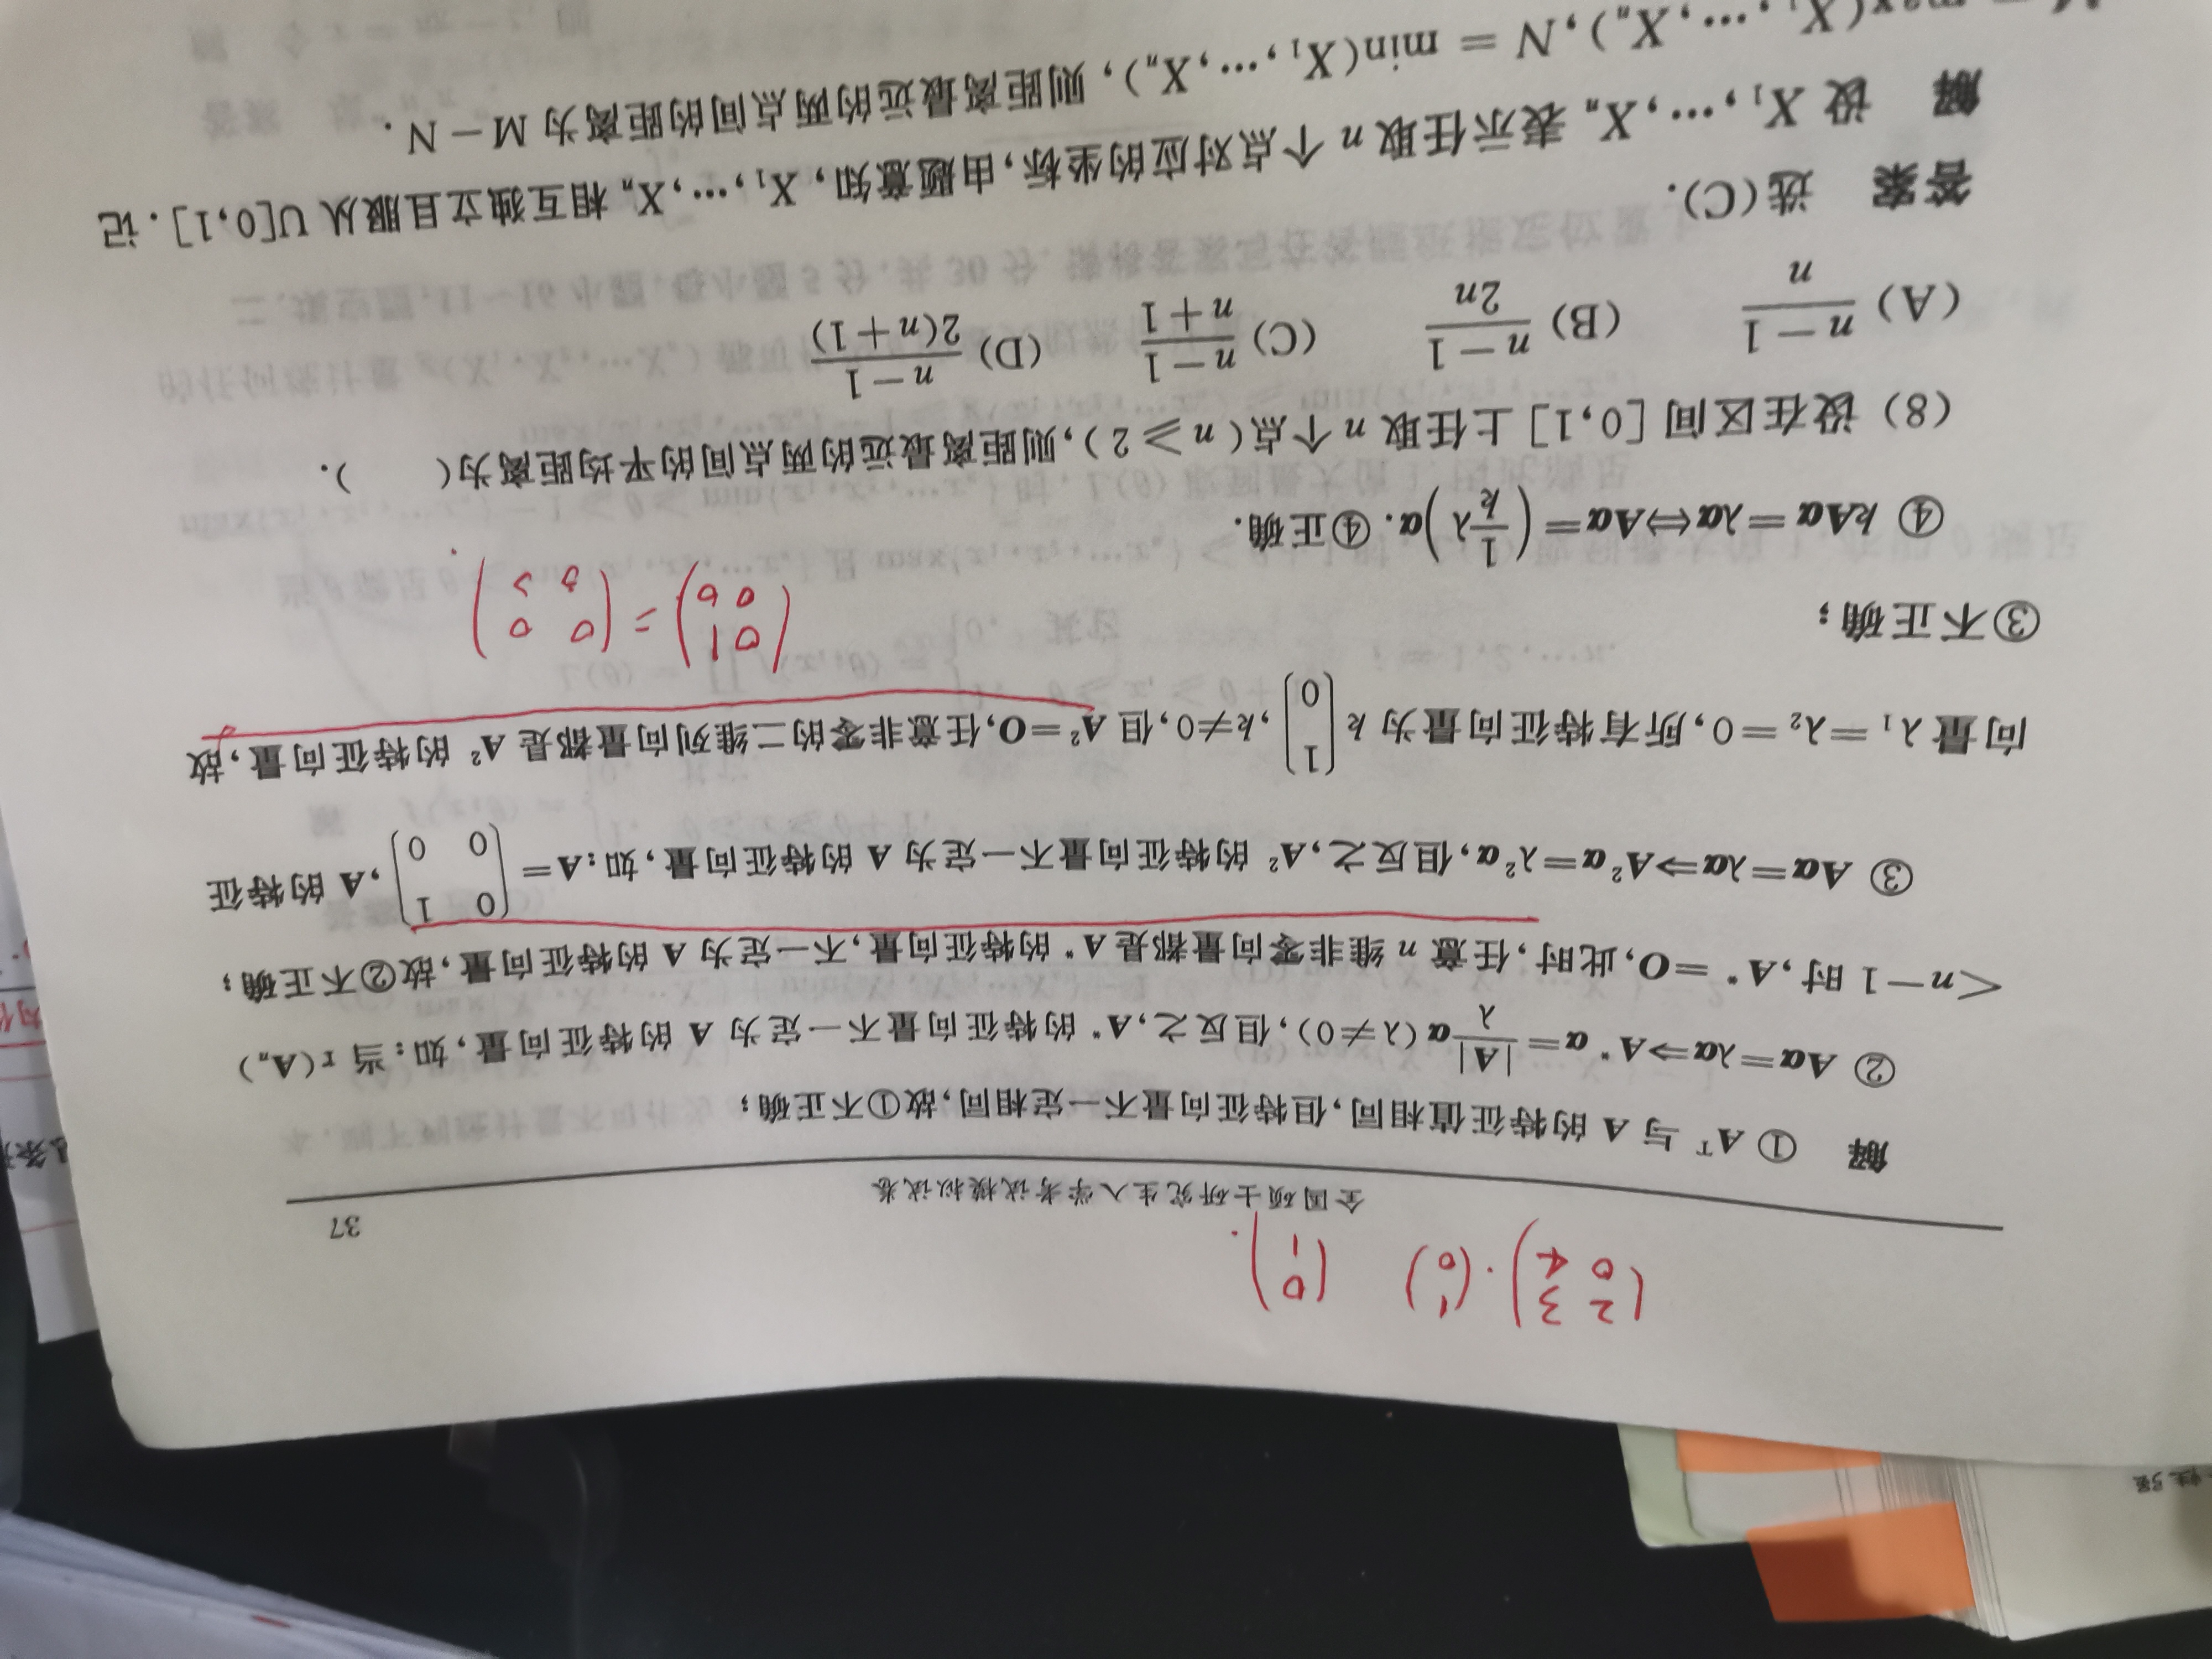 (2 3
0 4) · (1
0) (0
1).
全国硕士研究生入学考试模拟试卷 37
解 ① Aᵀ 与 A 的特征值相同,但特征向量不一定相同,故①不正确;
② Aα=λα⇒A*α=|A|/λ α(λ≠0),但反之,A* 的特征向量不一定为 A 的特征向量,如:当 r(Aₙ)
<n−1 时,A*=O,此时,任意 n 维非零向量都是 A* 的特征向量,不一定为 A 的特征向量,故②不正确;
③ Aα=λα⇒A²α=λ²α,但反之,A² 的特征向量不一定为 A 的特征向量,如:A=(0 1
0 0),A 的特征
向量 λ₁=λ₂=0,所有特征向量为 k(1
0),k≠0,但 A²=O,任意非零的二维列向量都是 A² 的特征向量,故
③不正确;
(0 1
0 0) = (0 0
④ kAα=λα⇔Aα=(1/k λ)α. ④正确.
(8) 设在区间 [0,1] 上任取 n 个点(n⩾2),则距离最远的两点间的平均距离为( ).
(A) n−1/n (B) n−1/2n (C) n−1/n+1 (D) n−1/2(n+1)
答案 选(C).
解 设 X₁,⋯,Xₙ 表示任取 n 个点对应的坐标,由题意知,X₁,⋯,Xₙ 相互独立且服从 U[0,1]. 记
M = max(X₁,⋯,Xₙ),N = min(X₁,⋯,Xₙ),则距离最远的两点间的距离为 M−N.